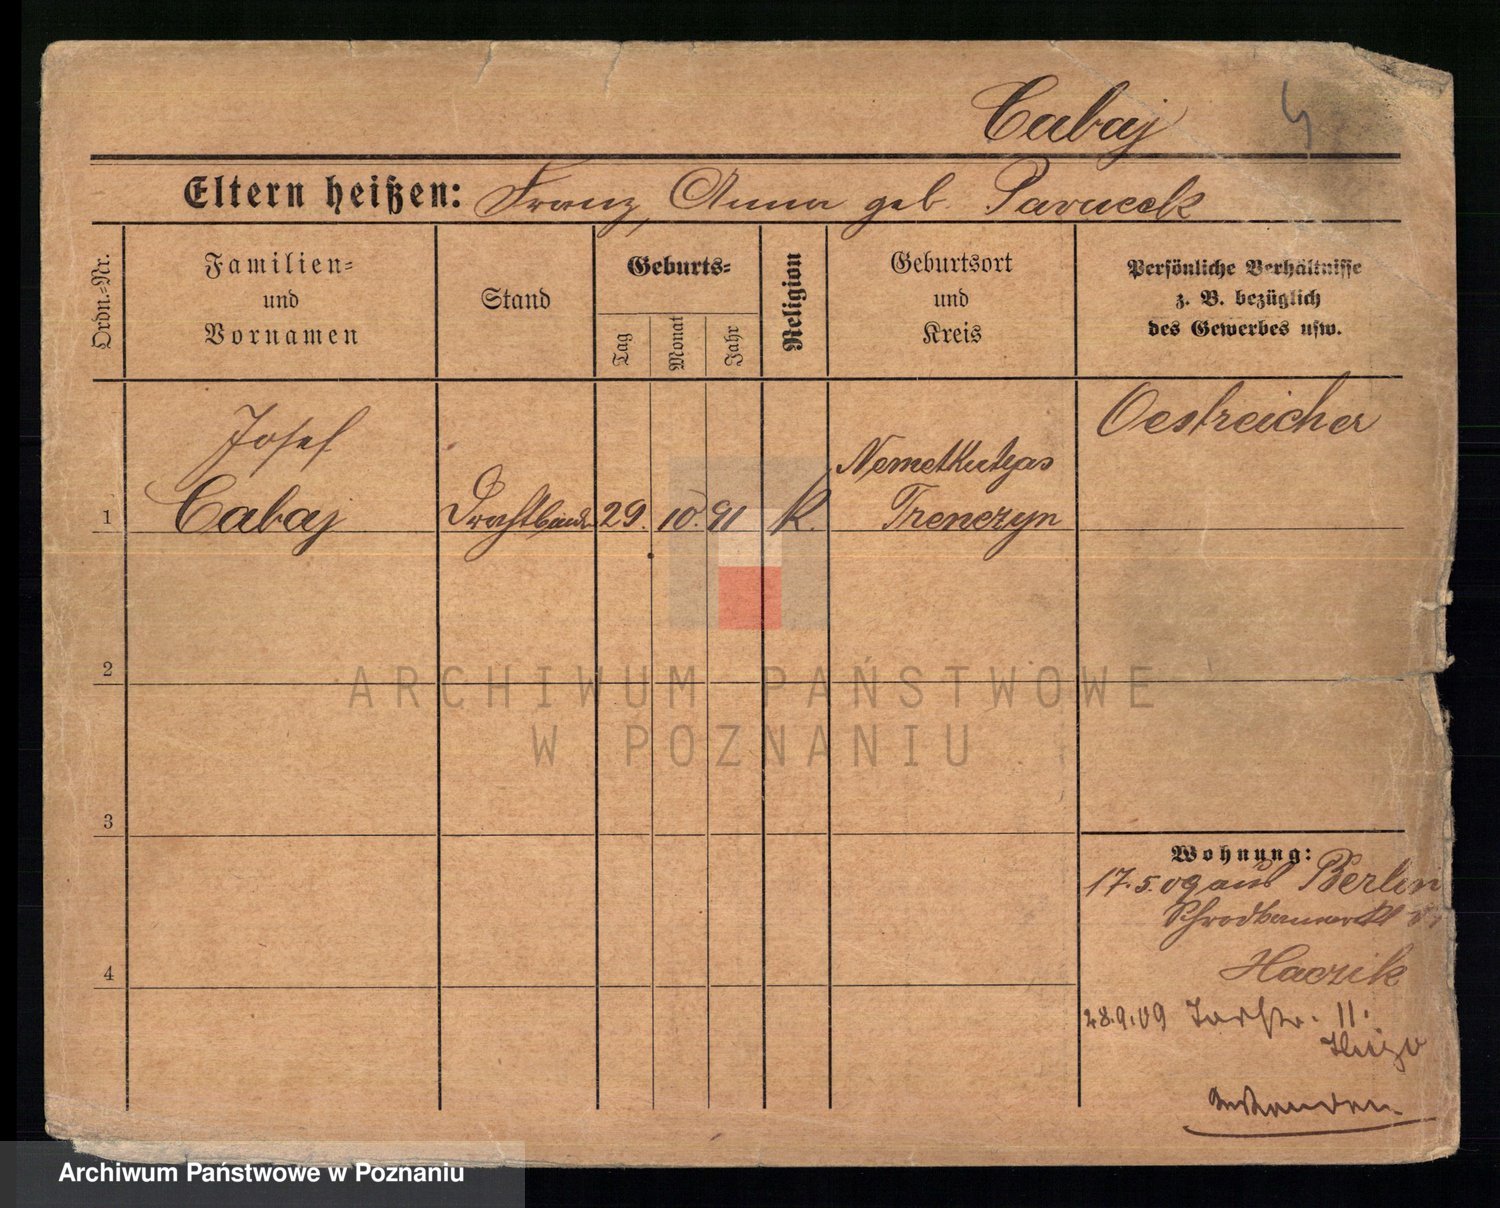 Cabaj
Eltern heißen: Franz, Anna geb. Parucek
Ordn.-Nr.
Familien-
und
Vornamen
Stand
Geburts-
Tag
Monat
Jahr
Religion
Geburtsort
und
Kreis
Persönliche Verhältnisse
z. B. bezüglich
des Gewerbes usw.
Josef
Oestreicher
1 Cabaj 29. 10. 91 K.
Trenczyn
2
ARCHIWUM PAŃSTWOWE
W POZNANIU
3
Wohnung:
17.5.09 aus Berlin
Haczik
4
28.9.09 11.
Archiwum Państwowe w Poznaniu